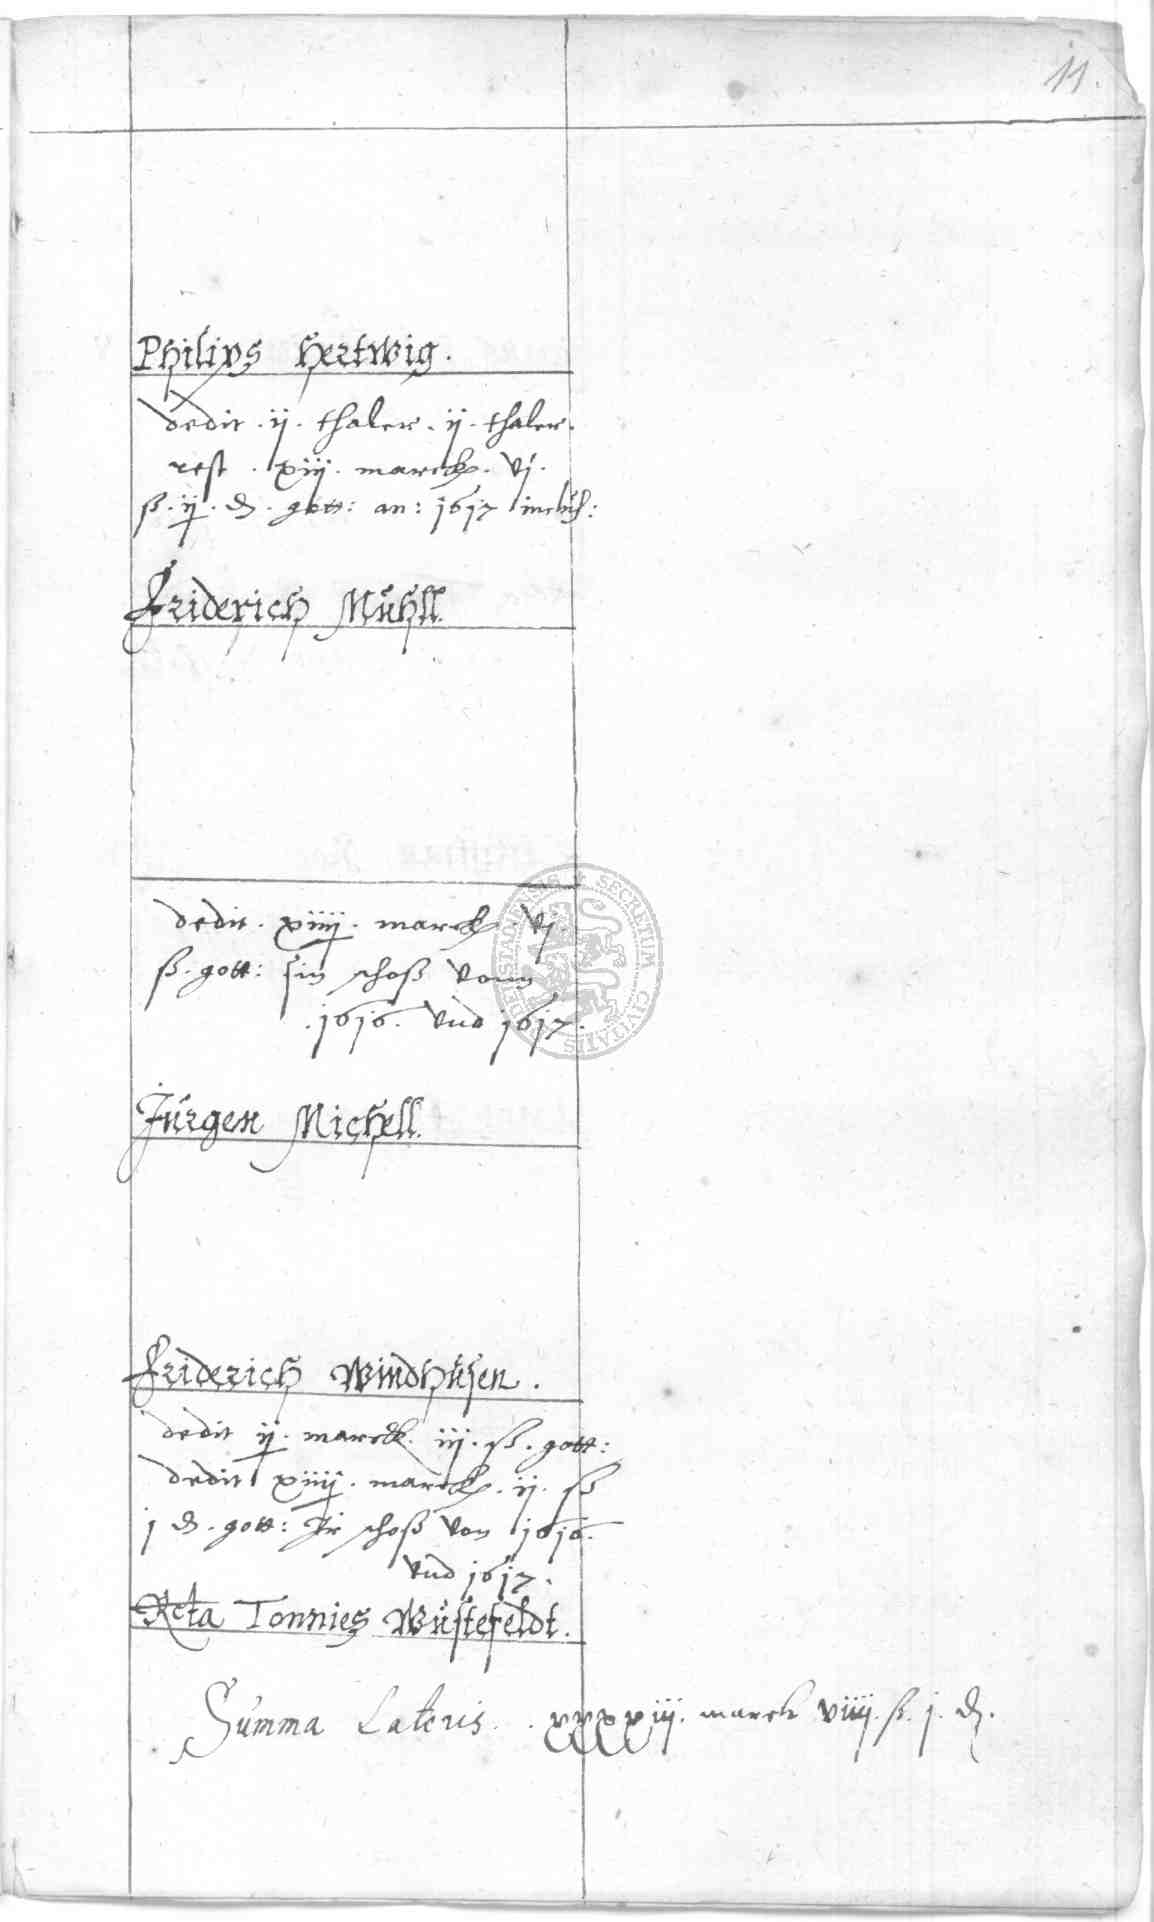 11.
Philips Hertwig.
dedit . ij . thaler . ij . thaler .
rest . xiij . marck . vj .
ß . ij . d . gott : an : 1617 inclus :
Friderich Mühll.
dedit . xiiij . marck . vj .
ß . gott : sin schoß vonn
. 1616 . vnd 1617 .
Jürgen Michell.
Friderich Windhusen .
dedit ij . marck . iij . ß . gott :
dedit xiiij . marck . ij . ß
j d . gott : Ir schoß von 1616 .
vnd 1617 .
Rcta Tonnies Wüstefeldt .
Summa Lateris . . xxxxiij . marck viiij . ß . j . d .
SECRETUM CIVITATIS